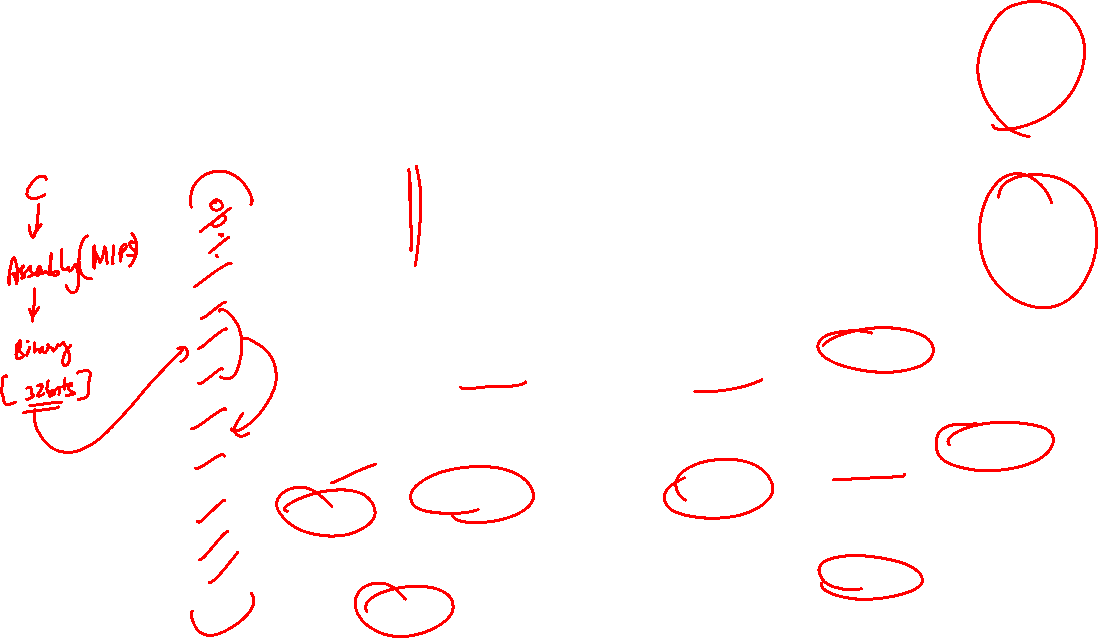 C
Assembly (MIPS)
Binary
[32bits]